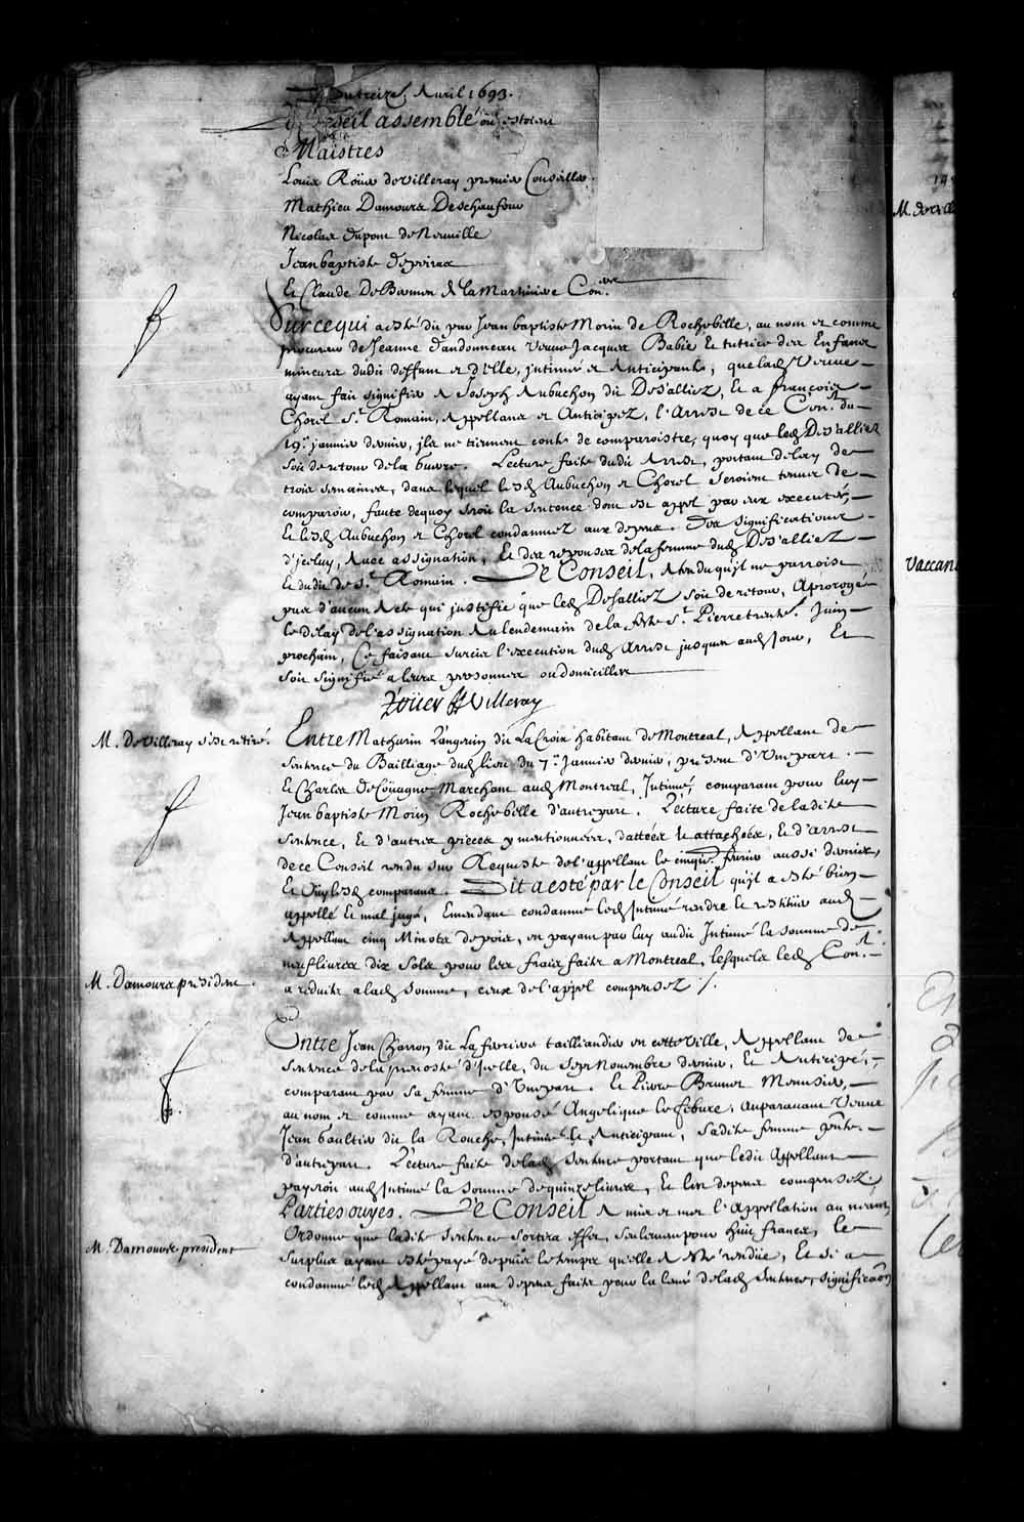 treize Auril 1693.
seil assemblé où estoient
Maistres
Louis Roüer deVilleray premier Conseiller.
Mathieu Damours Deschaufour
Nicolas dupont deNeuuille
Jean baptiste depeiras
Et Claude De Bermen de la Martiniere Con.ers
Sur ce qui a esté dit par Jean baptiste Morin de Rochebelle, au nom et comme
procureur de Jeanne dandonneau veuue Jacques Babie et tutrice des Enfans
mineurs dudit deffunt et d'Elle, jntimée et Anticipante, que lad. Veuue
ayant fait signifier a Joseph Aubuchon dit Des'alliez, Et a françois
Chorel St. Romain, Appellans et Anticipez, l'Arrest de ce Con.el du
19e. januier dernier, jls ne tiennent conte de comparoistre, quoy que led. Des'alliez
soit de retour de la Guerre. Lecture faite dudit Arrest, portant delay de
trois semaines, dans lequel lesd. Aubuchon et Chorel seroient tenus de
comparoir, faute dequoy seroit la sentence dont est appel par eux executée,
Et lesd. Aubuchon et Chorel condamnez aux depens. Des significations
d'jceluy, auec assignation, Et des reponses de la femme dud. Des'alliez
Et dudit de St. Romain. Le Conseil, Attendu qu'jl ne parroist
par d'aucun Acte qui justifie que led. Desalliez soit de retour, A prorogé
le delay de l'assignation Au lendemain de la feste St. Pierre trente. Juin
prochain, Ce faisant surcis l'execution dud. Arrest jusques aud. jour, Et
soit signifié a leurs personnes ou domiciles
Roüer de Villeray
M. de Villeray s'est retiré.
Entre Mathurin Langeuin dit La Croix habitant de Montreal, Appellant de
sentence du Bailliage dud. lieu du 7e. Januier dernier, present d'Vne part.
Et Charles de Coüagne Marchant aud. Montreal, Intimé, comparant pour luy
Jean baptiste Morin Rochebelle d'autre part. Lecture faite de ladite
sentence, Et d'autres pieces y mentionnées, dattées et attachées, Et d'arrest
de ce Conseil rendu sur Requeste de l'appellant le cinqe. feurier aussi dernier,
Et Ouy lesd. comparans. Dit a esté par le Conseil qu'jl a esté bien
appellé Et mal jugé, Emendant condamne led. Intimé rendre Et restitüer aud.
Appellant cinq Minots de pois, en payant par luy audit Intimé la somme de
neuf liures dix sols pour les fraix faits a Montreal, lesquels led. Con.el
a reduits a lad. somme, ceux de l'appel compensez ./.
M. Damours president.
Entre Jean Charron dit La ferriere taillandier en cette Ville, Appellant de
sentence de la preuosté d'jcelle, du sept Nouembre dernier, Et Anticipé,
comparant par sa femme d'Vne part. Et Pierre Brunet Menusier,
au nom et comme ayant espousé Angelique le febure, auparauant Veuue
Jean Gaultier dit la Rouche, Intimé Et Anticipant, sadite femme pnte.
d'autre part. Lecture faite de lad. sentence portant que ledit Appellant
payeroit aud. Intimé la somme de quinze liures, Et les depens compensez.
Parties ouyes. Le Conseil A mis et met l'Appellation au neant,
Ordonne que ladite sentence sortira effet, seulement pour huit francs, le
surplus ayant esté payé depuis le temps qu'elle A esté rendüe, Et si a
condamné led. Appellant aux depens faits pour la leué de lad. sentence, significaon
M. Damours president
Vaccan